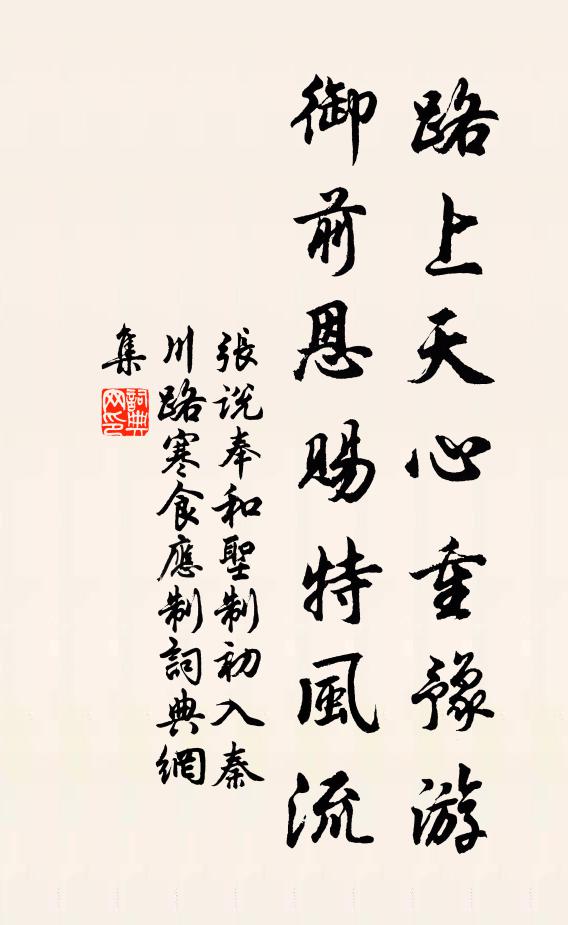 路上天心重豫游
御前恩賜特風流
張説奉和聖制初入秦
川路寒食應制詞典網
集
詞典
网印